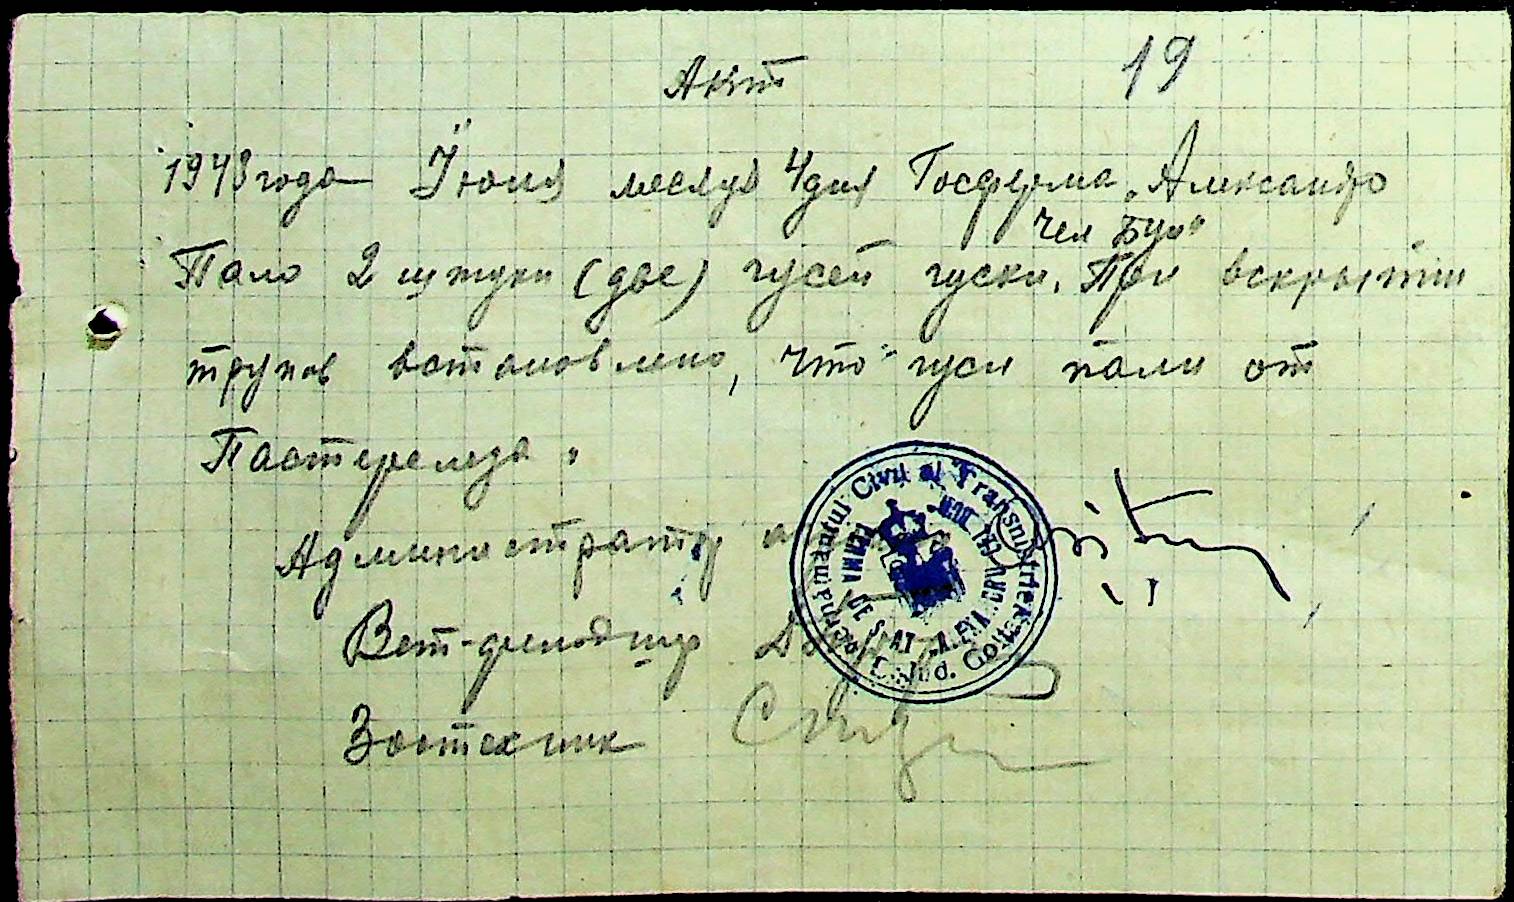 Акт
19
1943 года Июля месяца 4 дня Госферма „Александро
чел Бун"
Пало 2 штуки (две) гусей гуски. При вскрытии
трупов встановлено, что гуси пали от
Пастерелеза.
Администратор
Вет-фельдшер
Зоотехник
Guvernământul Civil al Transnistriei
Jud. Golta
FERMA DE STAT „ALEXANDRU CEL BUN"